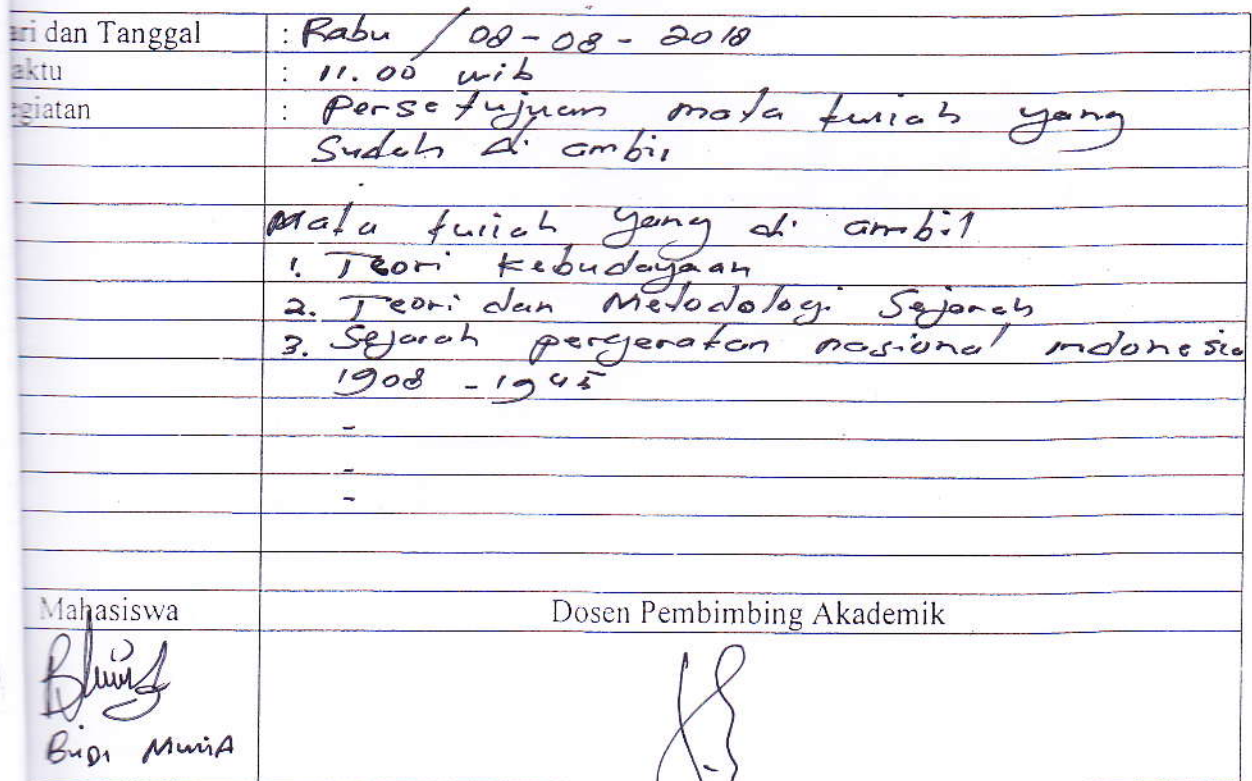 ri dan Tanggal : Rabu / 08-08-2018
aktu : 11.00 wib
egiatan : Persetujuan mata kuliah yang
Sudah di ambil
Mata kuliah yang di ambil
1. Teori Kebudayaan
2. Teori dan Metodologi Sejarah
3. Sejarah pergerakan nasional indonesia
1908 - 1945
-
-
-
Mahasiswa Dosen Pembimbing Akademik
BuDi